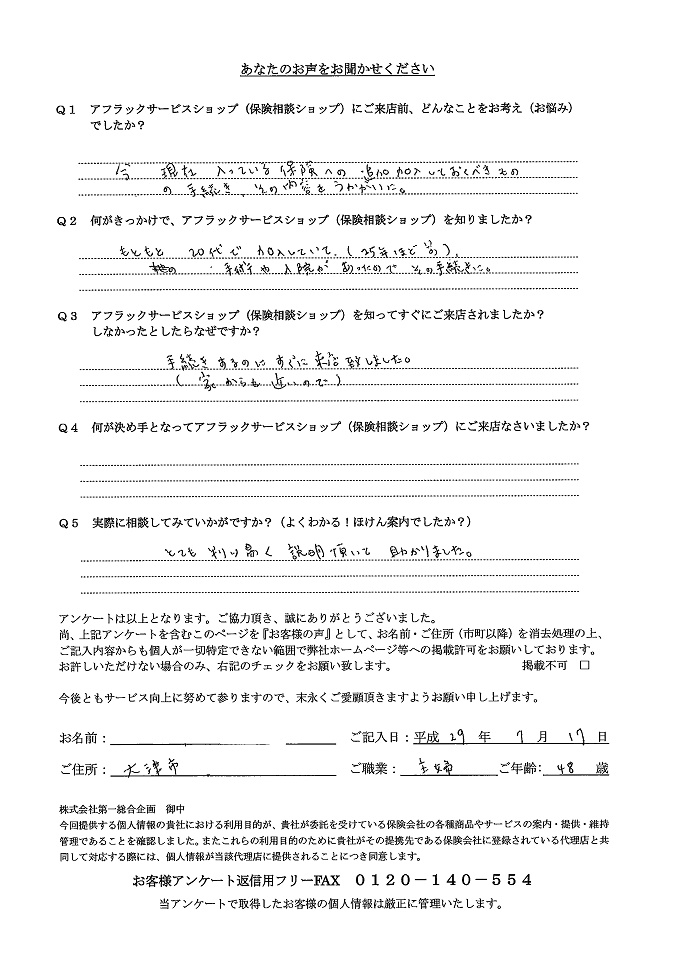 あなたのお声をお聞かせください
Q1 アフラックサービスショップ（保険相談ショップ）にご来店前、どんなことをお考え（お悩み）
でしたか？
今 現在 入っている 保険への 追加 加入しておくべきもの
の 手続き、その内容をうかがいに。
Q2 何がきっかけで、アフラックサービスショップ（保険相談ショップ）を知りましたか？
もともと 20代で 加入していて、（25年ほど前）、
手術や入院があったので その手続きに。
Q3 アフラックサービスショップ（保険相談ショップ）を知ってすぐにご来店されましたか？
しなかったとしたらなぜですか？
手続きあるのにすぐに来店致しました。
（家からも近いので）
Q4 何が決め手となってアフラックサービスショップ（保険相談ショップ）にご来店なさいましたか？
Q5 実際に相談してみていかがですか？（よくわかる！ほけん案内でしたか？）
とても 判り易く 説明頂いて 助かりました。
アンケートは以上となります。ご協力頂き、誠にありがとうございました。
尚、上記アンケートを含むこのページを『お客様の声』として、お名前・ご住所（市町以降）を消去処理の上、
ご記入内容からも個人が一切特定できない範囲で弊社ホームページ等への掲載許可をお願いしております。
お許しいただけない場合のみ、右記のチェックをお願い致します。 掲載不可 □
今後ともサービス向上に努めて参りますので、末永くご愛顧頂きますようお願い申し上げます。
お名前： ご記入日：平成 29 年 7 月 17 日
ご住所： 大津市 ご職業： 主婦 ご年齢： 48 歳
株式会社第一総合企画 御中
今回提供する個人情報の貴社における利用目的が、貴社が委託を受けている保険会社の各種商品やサービスの案内・提供・維持
管理であることを確認しました。またこれらの利用目的のために貴社がその提携先である保険会社に登録されている代理店と共
同して対応する際には、個人情報が当該代理店に提供されることにつき同意します。
お客様アンケート返信用フリーFAX 0120－140－554
当アンケートで取得したお客様の個人情報は厳正に管理いたします。